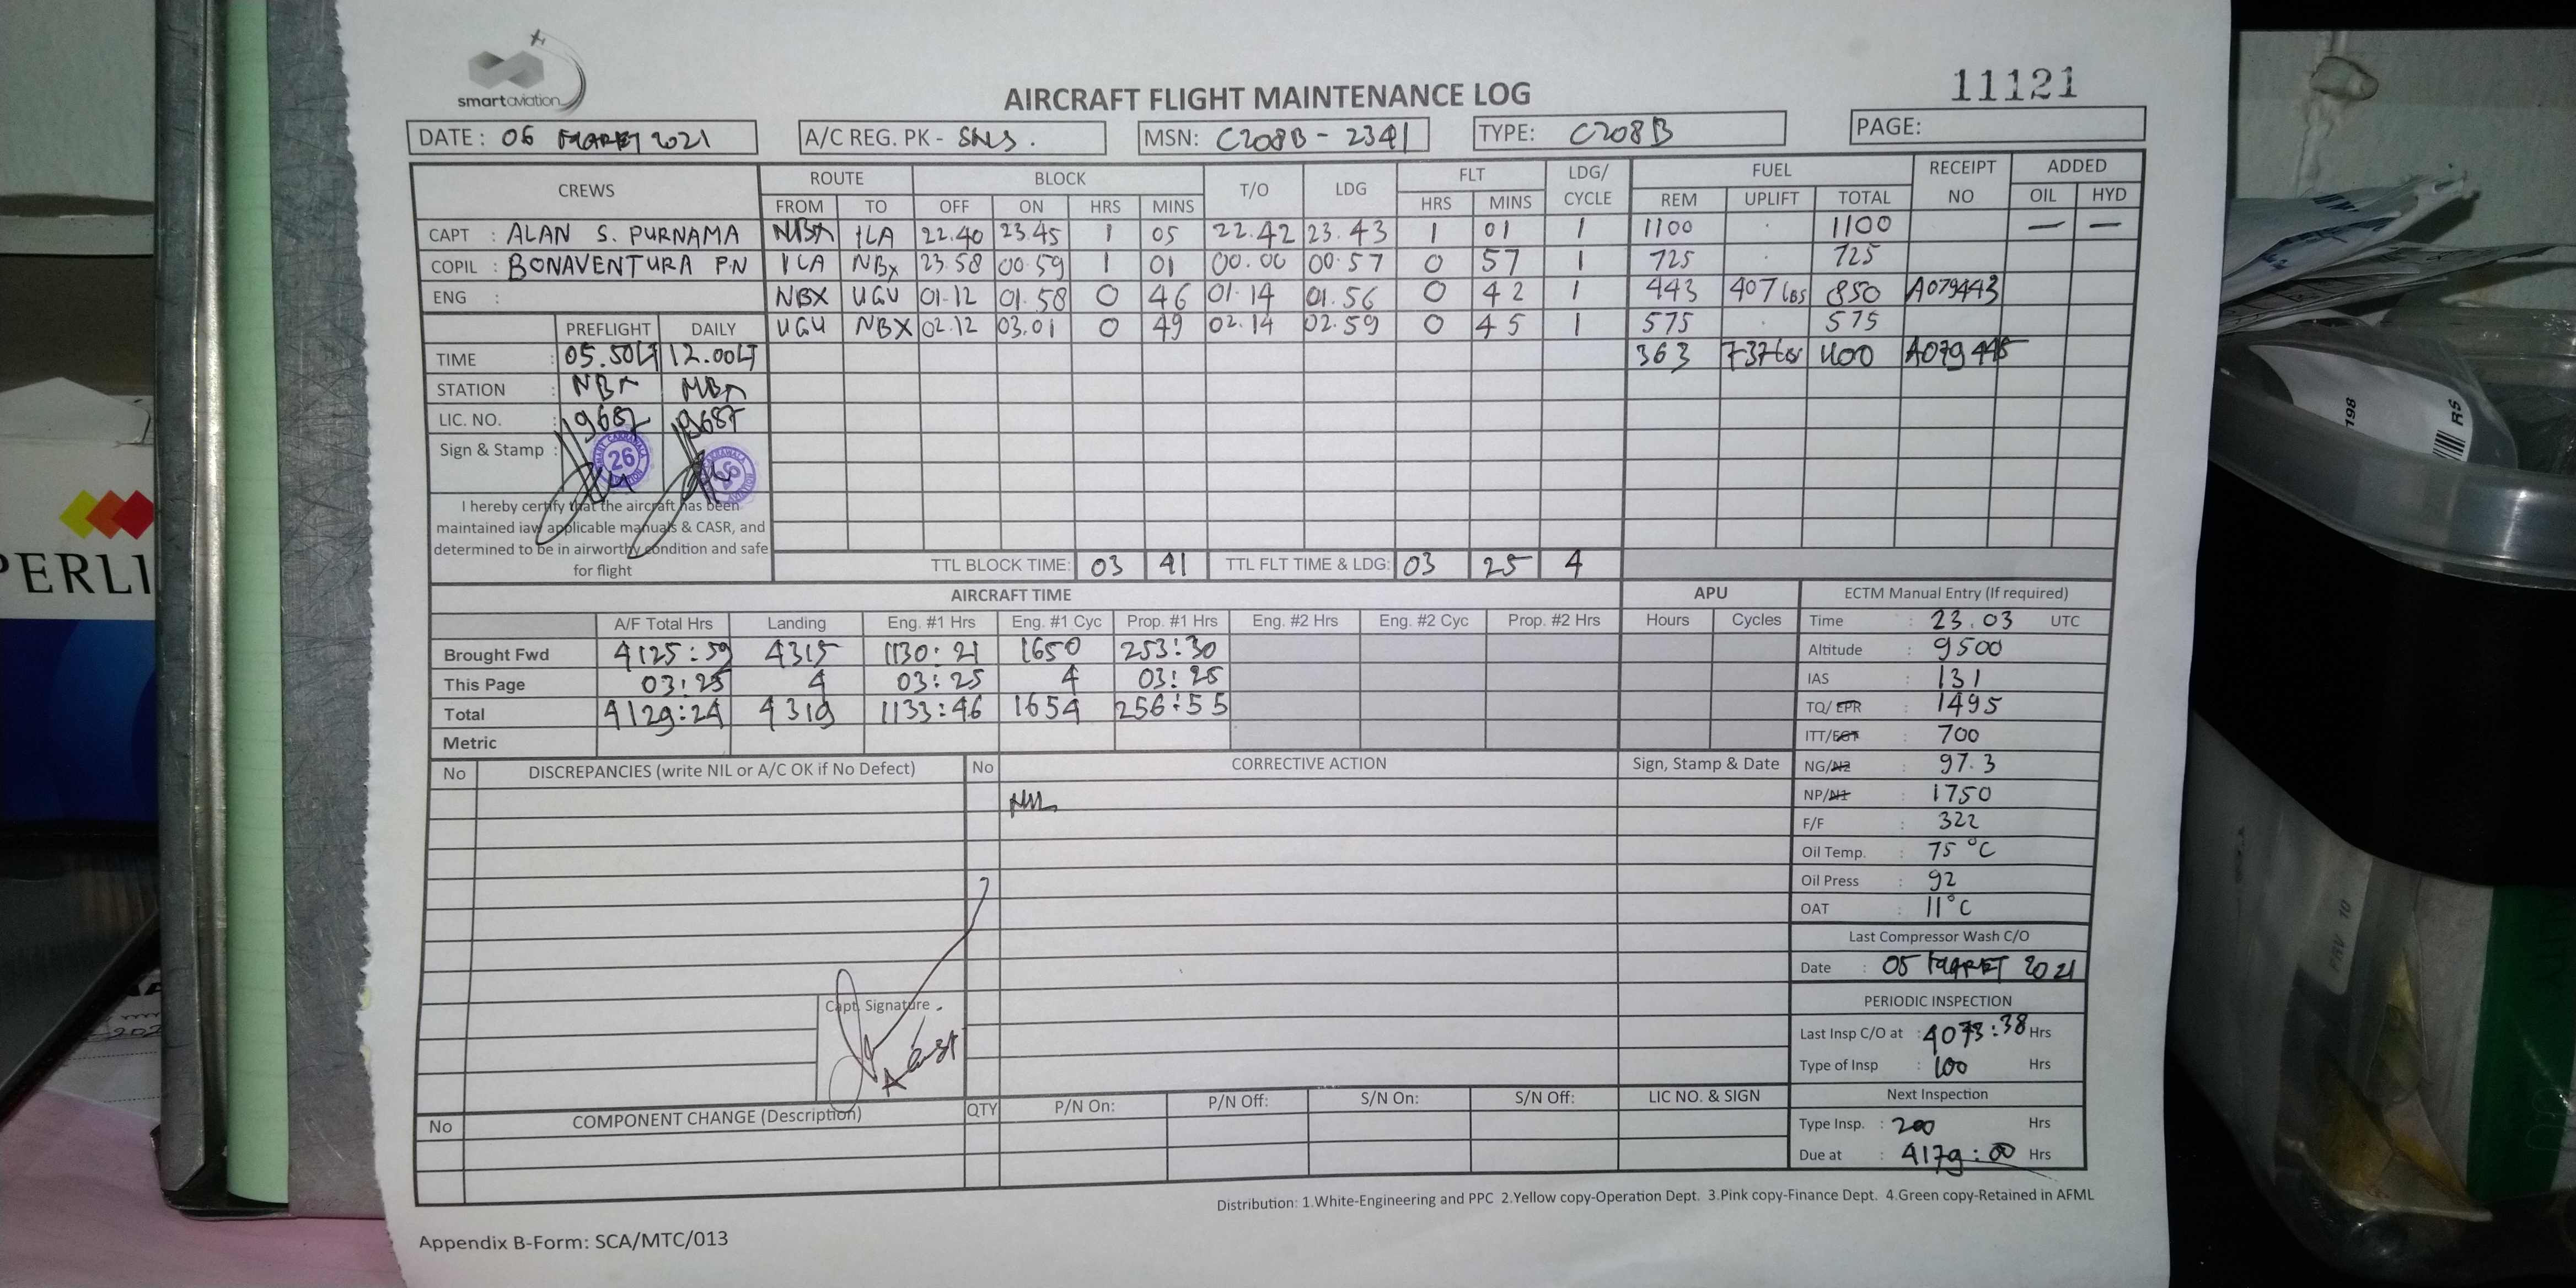 smartaviation
AIRCRAFT FLIGHT MAINTENANCE LOG
11121
DATE : 06 MARET 2021 A/C REG. PK - SNS. MSN: C208B - 2341 TYPE: C208B PAGE:
CREWS ROUTE BLOCK T/O LDG FLT LDG/ CYCLE FUEL RECEIPT NO ADDED
FROM TO OFF ON HRS MINS HRS MINS REM UPLIFT TOTAL OIL HYD
CAPT : ALAN S. PURNAMA NBX ILA 22.40 23.45 1 05 22.42 23.43 1 01 1 1100 . 1100 — —
COPIL : BONAVENTURA P.N ILA NBX 23.58 00.59 1 01 00.00 00.57 0 57 1 725 . 725
ENG : NBX UGU 01.12 01.58 0 46 01.14 01.56 0 42 1 443 407 lbs 850 A079443
PREFLIGHT DAILY UGU NBX 02.12 03.01 0 49 02.14 02.59 0 45 1 575 . 575
TIME : 05.50LT 12.00LT 363 737lbs 1100 A079445
STATION : NBX NBX
LIC. NO. : 9687 9687
Sign & Stamp : 26 26
I hereby certify that the aircraft has been
maintained iaw applicable manuals & CASR, and
determined to be in airworthy condition and safe
for flight
TTL BLOCK TIME: 03 41 TTL FLT TIME & LDG: 03 25 4
AIRCRAFT TIME APU ECTM Manual Entry (If required)
A/F Total Hrs Landing Eng. #1 Hrs Eng. #1 Cyc Prop. #1 Hrs Eng. #2 Hrs Eng. #2 Cyc Prop. #2 Hrs Hours Cycles Time : 23.03 UTC
Brought Fwd 4125:59 4315 1130:21 1650 253:30 Altitude : 9500
This Page 03:25 4 03:25 4 03:25 IAS : 131
Total 4129:24 4319 1133:46 1654 256:55 TQ/EPR : 1495
Metric ITT/EGT : 700
No DISCREPANCIES (write NIL or A/C OK if No Defect) No CORRECTIVE ACTION Sign, Stamp & Date NG/N2 : 97.3
NIL NP/N1 : 1750
F/F : 322
Oil Temp. : 75 °C
Oil Press : 92
OAT : 11°C
Last Compressor Wash C/O
Date : 05 MARET 2021
Capt. Signature
PERIODIC INSPECTION
Last Insp C/O at : 4073:38 Hrs
Type of Insp : 100 Hrs
No COMPONENT CHANGE (Description) QTY P/N On: P/N Off: S/N On: S/N Off: LIC NO. & SIGN Next Inspection
Type Insp. : 200 Hrs
Due at : 4179:00 Hrs
Distribution: 1.White-Engineering and PPC 2.Yellow copy-Operation Dept. 3.Pink copy-Finance Dept. 4.Green copy-Retained in AFML
Appendix B-Form: SCA/MTC/013
PERLI
198
RS
PRV 10